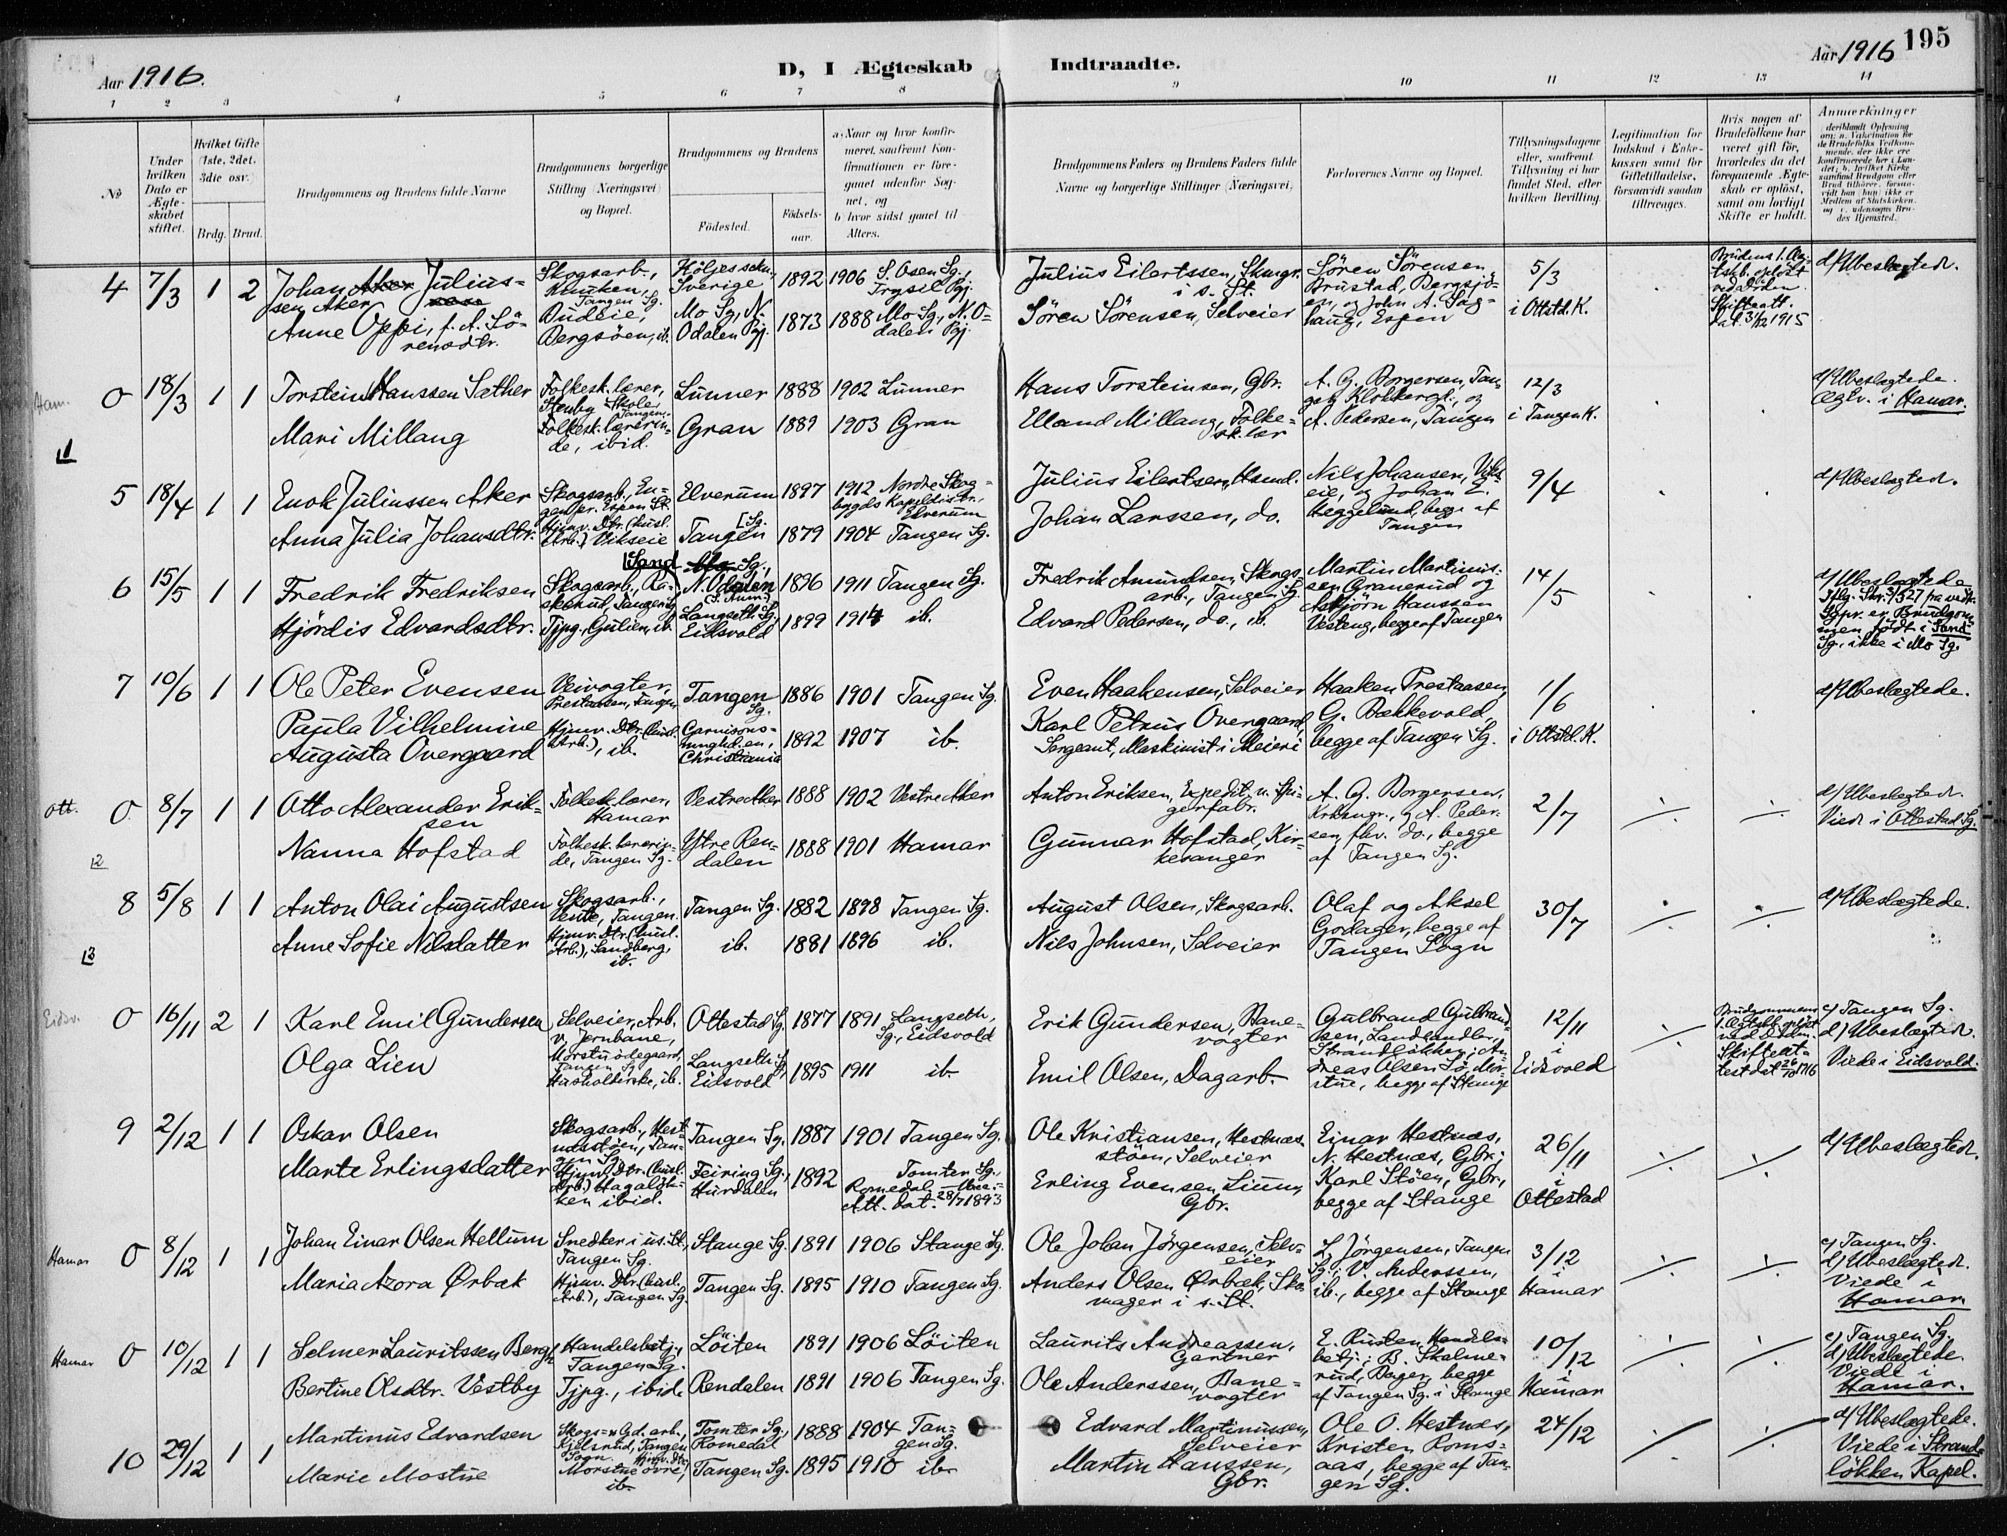 195
Aar 1916.
D, I Ægteskab Indtraadte.
Aar 1916
1 2 3 4 5 6 7 8 9 10 11 12 13 14
No
Under hvilken Dato er Ægteskabet stiftet.
Hvilket Gifte (1ste, 2det, 3die osv.)
Brdg. Brud.
Brudgommens og Brudens fulde Navne
Brudgommens borgerlige Stilling (Næringsvei) og Bopæl.
Brudgommens og Brudens
Födested.
Födselsaar.
a) Naar og hvor konfirmeret, saafremt Konfirmationen er foregaaet udenfor Sognet, og
b) hvor sidst gaaet til Alters.
Brudgommens Faders og Brudens Faders fulde Navne og borgerlige Stillinger (Næringsvei)
Forlovernes Navne og Bopæl.
Tillysningsdagene eller, saafremt Tillysning ei har fundet Sted, efter hvilken Bevilling.
Legitimation for Indskud i Enkekassen samt for Giftetilladelse, forsaavidt saadan tiltrænges.
Hvis nogen af Brudefolkene har været gift för, hvorledes da det foregaaende Ægteskab er oplöst, samt om lovligt Skifte er holdt.
Anmerkninger
4 7/3 1 2 Johan Aker Juliussen Aker
Skogsarb., Knuken, Tangen Sg.
Höljes sokn, Sverige 1892 1906 S. Osen Sg., Trysil Pgj.
Julius Eilertssen, Skogr. i s. St.
Sören Sörensen Brustad, Bergsjöen, og John A. Saghaug, Espen
5/3 i Ottstd. K.
Brudens 1. Ægtesk. oplöst ved Döden. Skifteatt. dat. 31/12 1915
d/ Ubeslegtede.
Anne Oppi, f. A. Sörensdtr.
Budeie, Bergsöen, ib.
Mo Sg., N. Odalen Pgj. 1873 1888 Mo Sg., N. Odalen Pgj.
Sören Sörensen, Selveier
Ham. 0 18/3 1 1 Torstein Hanssen Sæther
Folkesk. lærer, Stenby Skole, Tangen.
Lunner 1888 1902 Lunner
Hans Torsteinsen, Gbr.
A. G. Borgersen, Tangen, Klokkergd., og A. Pedersen, Tangen
12/3 i Tangen K.
d/ Ubeslegtede. Ægtv. i Hamar.
Mari Millang
Folkesk. lærerinde, ibid.
Gran 1889 1903 Gran
Elland Millang, Folkesk. lær
1
5 18/4 1 1 Enok Juliussen Aker
Elverum 1897 1912 Nordre Skogbygds Kapeldistr., Elverum
Julius Eilertsen, Hsmd.
Nils Johansen, Vikseie, og Johan L. Heggelund, begge af Tangen
9/4
d/ Ubeslægtede.
Anna Julia Johansdtr.
Hjmv. Dtr. (husl. Arb.) Vikseie
Tangen Sg. 1879 1904 Tangen Sg.
Johan Larssen, do.
6 15/5 1 1 Fredrik Fredriksen
Sand Sg., N. Odalen 1896 1911 Tangen Sg.
Fredrik Amundsen, Skogsarb., Tangen Sg.
Martin Martinussen Granerud og Asbjörn Hanssen Vesteng, begge af Tangen
14/5
d/ Ubeslægtede
Hjördis Edvardsdtr.
Tjpg., Gulien, ib.
Langseth Sg. Eidsvold 1899 1914 ib.
Edvard Pedersen, do., ib.
Brudgommen födt i Sand Sg., ikke i Mo Sg.
7 10/6 1 1 Ole Peter Evensen
Veivogter, Prestaasen, Tangen
Tangen Sg. 1886 1901 Tangen Sg.
Even Haakensen, Selveier
Haaken Prestaasen, G. Bækkevold, begge af Tangen Sg.
1/6 i Ottstd. K.
d/ Ubeslægtede.
Paula Vilhelmine Augusta Overgaard
Hjmv. Dtr. (husl. Arb.), ib.
Garnisonsmenigheden, Christiania 1892 1907 ib.
Karl Petrus Overgaard, Sergeant, Maskinist i Meieri
Ott. 0 8/7 1 1 Otto Alexander Eriksen
Folkesk. lærer, Hamar
Vestre Aker 1888 1902 Vestre Aker
Anton Eriksen, Expedit. v. Spigerfabr.
A. G. Borgersen, Krksngr., og A. Pedersen, fhv. do., begge af Tangen Sg.
2/7
d/ Ubeslægtede. Viede i Ottestad Sg.
Nanna Hofstad
Folkesk. lærerinde, Tangen Sg.
Ytre Rendalen 1888 1901 Hamar
Gunnar Hofstad, Kirkesanger
2
8 5/8 1 1 Anton Olai Augustsen
Skogsarb., Vente, Tangen.
Tangen Sg. 1882 1898 Tangen Sg.
August Olsen, Skogsarb.
Olaf og Aksel Godager, begge af Tangen Sogn
30/7
d/ Ubeslægtede.
Anne Sofie Nilsdatter
Hjmv. Dtr. (husl. Arb.), Sandberg, ib.
ib. 1881 1896 ib.
Nils Johnsen, Selveier
3
Eidsv. 0 16/11 2 1 Karl Emil Gundersen
Selveier, Arb. v. Jernbane, Morstuödegaard, Tangen Sg.
Ottestad Sg. 1877 1891 Langseth Sg., Eidsvold
Erik Gundersen, Banevogter
Gulbrand Gulbrandsen, Landhandler, Strandlökken; Andreas Olsen Sö. Morstue, begge af Stange
12/11 i Eidsvold
Brudgommens 1. Ægtesk. oplöst ved Döden. Skifteattest dat. 26/10 1916
c/ Tangen Sg. d/ Ubeslægtede. Viede i Eidsvold.
Olga Lien
Husholderske, ib.
Langseth Sg., Eidsvold 1895 1911 ib.
Emil Olsen, Dagarb.
9 2/12 1 1 Oskar Olsen
Skogsarb., Hestnæsstöen, Tangen Sg.
Tangen Sg. 1887 1901 Tangen Sg.
Ole Kristiansen, Hestnæsstöen, Selveier
Einar Hestnæs, N. Hestnæs, Gbr.; Karl Stöen, Gbr., begge af Stange
26/11 i Ottestad
d/ Ubeslægtede.
Marte Erlingsdatter
Hjmv. Dtr. (husl. Arb.) Hagalökken ibid.
Feiring Sg., Hurdalen 1892 Tomter Sg., Romedal Vacc. Att. dat. 28/7 1893
Erling Evensen Liumy, Gbr.
Hamar 0 8/12 1 1 Johan Einar Olsen Hellum
Snedker i us. St., Tangen Sg.
Stange Sg. 1891 1906 Stange Sg.
Ole Johan Jörgensen, Selveier
L. Jörgensen, Tangen Sg.; V. Anderssen, ib., begge af Stange
3/12 i Hamar
c/ Tangen Sg. d/ Ubeslægtede. Viede i Hamar
Maria Azora Ørbæk
Hjmv. Dtr. (husl. Arb.), Tangen Sg.
Tangen Sg. 1895 1910 Tangen Sg.
Anders Olsen Ørbæk, Skomager i s. St.
Hamar 0 10/12 1 1 Selmer Lauritssen Bergh
Handelsbetj., Tangen Sg.
Löiten 1891 1906 Löiten
Laurits Andreassen, Gartner
E. Rusten, Handelsbetj.; B. Skalmerud, Bager, begge af Tangen Sg. i Stange
10/12 i Hamar
c/ Tangen Sg. d/ Ubeslægtede. Viede i Hamar.
Bertine Olsdtr. Vestby
Tjpg., ibid.
Rendalen 1891 1906 Tangen Sg.
Ole Anderssen, Banevogter
10 29/12 1 1 Martinus Edvardsen
Skogs- og Gd. arb., Kjelsrud, Tangen Sogn
Tomter Sg., Romedal 1888 1904 Tangen Sg.
Edvard Martinussen, Selveier
Ole O. Hestnæs, Kristen Romsaas, begge af Tangen Sg.
24/12
d/ Ubeslægtede. Viede i Strandlökken Kapel.
Marie Mostue
Hjmv. Dtr. Morstue övre, ib.
Tangen Sg. 1895 1910 ib.
Martin Hanssen, Gbr.